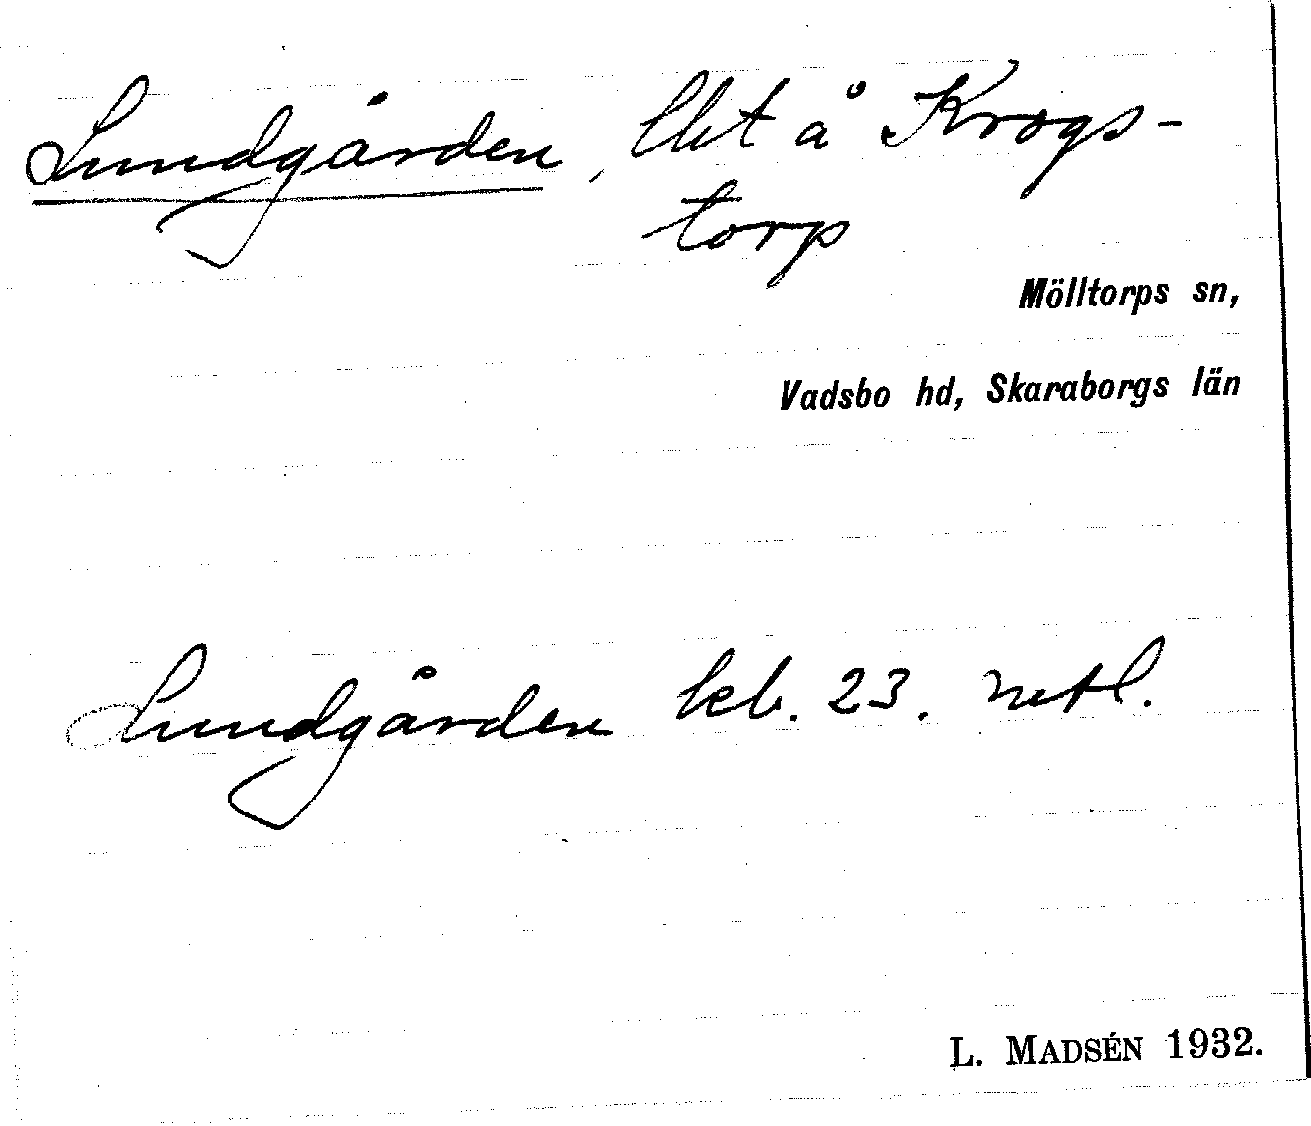 Lundgården, lht å Krogs-
torp
Mölltorps sn,
Vadsbo hd, Skaraborgs län
Lundgården kb. 23.
L. MADSÉN 1932.